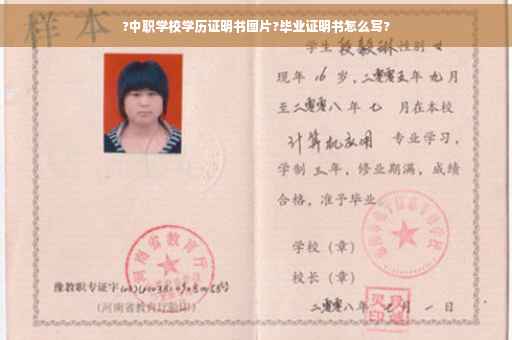 ?中职学校学历证明书图片?毕业证明书怎么写?
样本
学生段毅琳性别女
现年16岁,二零零五年九月
至二零零八年七 月在本校
计算机应用 专业学习,
学制三年,修业期满,成绩
合格,准予毕业。
学校(章)
校长(章)
二零零八年七月一日
河南省教育厅
豫教职专证字
(河南省教育厅验印)